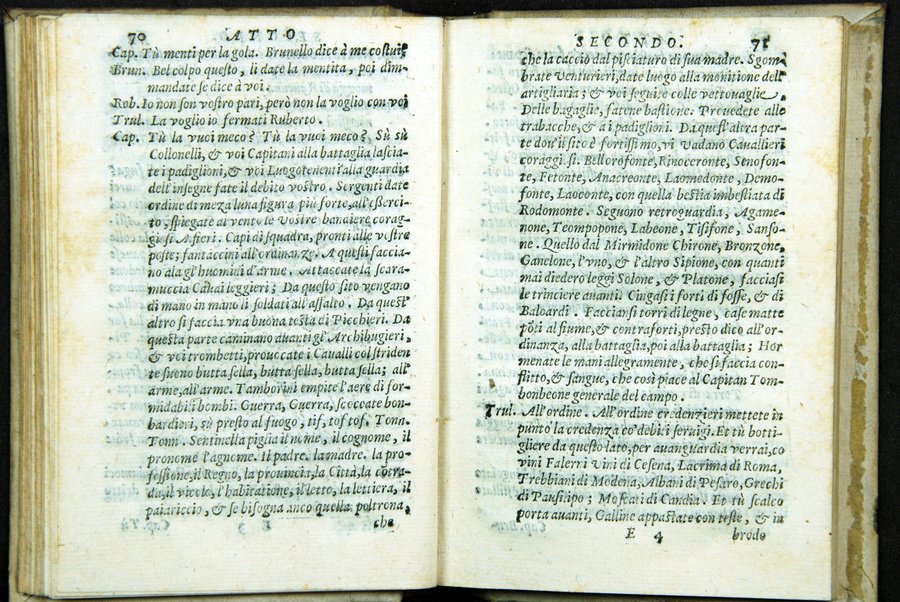 70 ATTO
Cap. Tù menti per la gola. Brunello dice à me costui?
Brun. Bel colpo questo, li date la mentita, poi dim-
mandate se dice à voi.
Rob. Io non son vostro pari, però non la voglio con voi
Trul. La voglio io fermati Ruberto.
Cap. Tù la vuoi meco? Tù la vuoi meco? Sù sù
Collonelli, & voi Capitani alla battaglia lascia-
te i padiglioni, & voi Luogotenenti alla guardia
dell'insegne fate il debito vostro. Sergenti date
ordine di meza luna figura più forte, all'esserci-
to, spiegate al vento le vostre bandiere corag-
giosi Alfieri. Capi di squadra, pronti alle vostre
poste; fantaccini all'ordinanze. A questi faccia-
no ala gl'huomini d'arme. Attaccate la scara-
muccia Cauai leggieri; Da questo sito vengano
di mano in mano li soldati all'assalto. Da quest'
altro si faccia vna buona testa di Picchieri. Da
questa parte caminano auanti gl'Archibugieri,
& voi trombetti, prouocate i Caualli col striden
te suono butta sella, butta sella, butta sella; all'
arme, all'arme. Tamborini empite l'aere di for-
midabili bombi. Guerra, Guerra, scoccate bon-
bardieri, sù presto al fuogo, tif, tof tof. Tonn.
Tonn. Sentinella piglia il nome, il cognome, il
pronome l'agnome. Il padre. la madre. la pro-
fessione, il Regno, la prouincia, la Città, la contra-
da, il vicolo, l'habitatione, il letto, la lettiera, il
paiariccio, & se bisogna anco quella poltrona,
E 3 che
SECONDO. 71
che la cacciò dal pisciaturo di sua madre. Sgom-
brate Venturieri, date luogo alla monitione dell'
artigliaria; & voi seguite colle vettouaglie.
Delle bagaglie, fatene bastione. Prouedete alle
trabacche, & a i padiglioni. Da quest'altra par-
te dou'il sito è fortissimo, vi vadano Cauallieri
coraggiosi. Bellorofonte, Rinoceronte, Senofon-
te, Fetonte, Anacreonte, Laomedonte, Demo-
fonte, Laoconte, con quella bestia imbestiata di
Rodomonte. Seguono retroguardia, Agame-
none, Teompopone, Labeone, Tisifone, Sanso-
ne. Quello dal Mirmidone Chirone, Bronzone,
Ganelone, l'vno, & l'altro Sipione, con quanti
mai diedero leggi Solone, & Platone, facciasi
le trinciere auanti. Cingasi forti di fosse, & di
Baloardi. Facciansi torri di legne, case matte
pōti al fiume, & contraforti, presto dico all'or-
dinanza, alla battaglia, poi alla battaglia; Hor
menate le mani allegramente, che si faccia con-
flitto, & sangue, che così piace al Capitan Tom-
bonbeone generale del campo.
Trul. All'ordine. All'ordine credenzieri mettete in
punto la credenza co' debici seruigi. Et tù botti-
gliere da questo lato, per auanguardia verrai, co
vini Falerri Vini di Cesena, Lacrima di Roma,
Trebbiani di Modena, Albani di Pesaro, Grechi
di Pausilipo; Moscari di Candia. Et tù scalco
porta auanti, Galline appastate con teste, & in
E 4 brodo